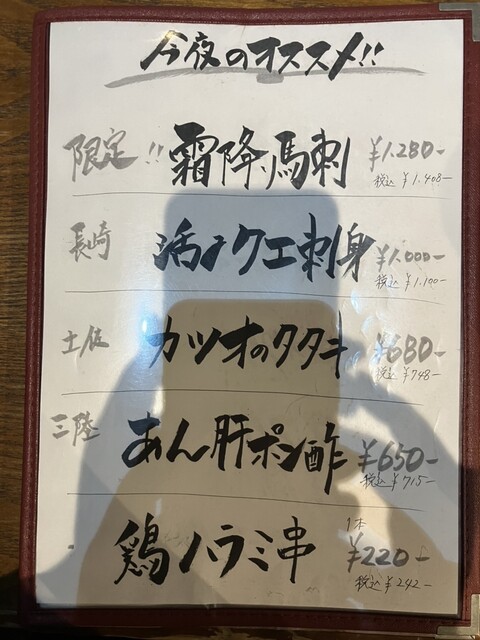 今夜のオススメ!!
限定!! 霜降馬刺 ¥1.280-
税込 ¥1.408-
長崎 活〆クエ刺身 ¥1.000-
税込 ¥1.100-
土佐 カツオのタタキ ¥680-
税込 ¥748-
三陸 あん肝ポン酢 ¥650-
税込 ¥715-
1本
鶏ハラミ串 ¥220-
税込 ¥242-